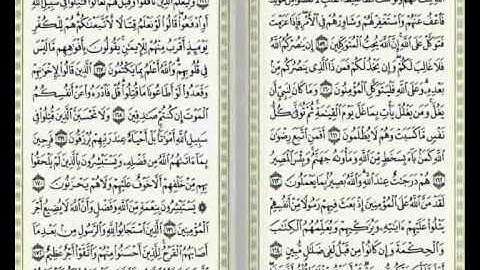 فَاعْفُ عَنْهُمْ وَاسْتَغْفِرْ لَهُمْ وَشَاوِرْهُمْ فِي الْأَمْرِ فَإِذَا عَزَمْتَ
فَتَوَكَّلْ عَلَى اللَّهِ إِنَّ اللَّهَ يُحِبُّ الْمُتَوَكِّلِينَ ١٥٩ إِن يَنصُرْكُمُ اللَّهُ
فَلَا غَالِبَ لَكُمْ وَإِن يَخْذُلْكُمْ فَمَن ذَا الَّذِي يَنصُرُكُم مِّن
بَعْدِهِ وَعَلَى اللَّهِ فَلْيَتَوَكَّلِ الْمُؤْمِنُونَ ١٦٠ وَمَا كَانَ لِنَبِيٍّ أَن
يَغُلَّ وَمَن يَغْلُلْ يَأْتِ بِمَا غَلَّ يَوْمَ الْقِيَٰمَةِ ثُمَّ تُوَفَّىٰ كُلُّ
نَفْسٍ مَّا كَسَبَتْ وَهُمْ لَا يُظْلَمُونَ ١٦١ أَفَمَنِ اتَّبَعَ رِضْوَٰنَ
اللَّهِ كَمَن بَاءَ بِسَخَطٍ مِّنَ اللَّهِ وَمَأْوَىٰهُ جَهَنَّمُ وَبِئْسَ الْمَصِيرُ
١٦٢ هُمْ دَرَجَٰتٌ عِندَ اللَّهِ وَاللَّهُ بَصِيرٌ بِمَا يَعْمَلُونَ ١٦٣
لَقَدْ مَنَّ اللَّهُ عَلَى الْمُؤْمِنِينَ إِذْ بَعَثَ فِيهِمْ رَسُولًا مِّنْ أَنفُسِهِمْ
يَتْلُوا عَلَيْهِمْ ءَايَٰتِهِ وَيُزَكِّيهِمْ وَيُعَلِّمُهُمُ الْكِتَٰبَ
وَالْحِكْمَةَ وَإِن كَانُوا مِن قَبْلُ لَفِي ضَلَٰلٍ مُّبِينٍ ١٦٤
وَلِيَعْلَمَ الَّذِينَ نَافَقُوا وَقِيلَ لَهُمْ تَعَالَوْا قَٰتِلُوا فِي سَبِيلِ اللَّهِ
أَوِ ادْفَعُوا قَالُوا لَوْ نَعْلَمُ قِتَالًا لَّاتَّبَعْنَٰكُمْ هُمْ لِلْكُفْرِ
يَوْمَئِذٍ أَقْرَبُ مِنْهُمْ لِلْإِيمَٰنِ يَقُولُونَ بِأَفْوَٰهِهِم مَّا لَيْسَ
فِي قُلُوبِهِمْ وَاللَّهُ أَعْلَمُ بِمَا يَكْتُمُونَ ١٦٧ الَّذِينَ قَالُوا لِإِخْوَٰنِهِمْ
وَقَعَدُوا لَوْ أَطَاعُونَا مَا قُتِلُوا قُلْ فَادْرَءُوا عَنْ أَنفُسِكُمُ
الْمَوْتَ إِن كُنتُمْ صَٰدِقِينَ ١٦٨ وَلَا تَحْسَبَنَّ الَّذِينَ قُتِلُوا فِي
سَبِيلِ اللَّهِ أَمْوَٰتًا بَلْ أَحْيَاءٌ عِندَ رَبِّهِمْ يُرْزَقُونَ ١٦٩ فَرِحِينَ
بِمَا ءَاتَىٰهُمُ اللَّهُ مِن فَضْلِهِ وَيَسْتَبْشِرُونَ بِالَّذِينَ لَمْ يَلْحَقُوا
بِهِم مِّنْ خَلْفِهِمْ أَلَّا خَوْفٌ عَلَيْهِمْ وَلَا هُمْ يَحْزَنُونَ ١٧٠
۞ يَسْتَبْشِرُونَ بِنِعْمَةٍ مِّنَ اللَّهِ وَفَضْلٍ وَأَنَّ اللَّهَ لَا يُضِيعُ أَجْرَ
الْمُؤْمِنِينَ ١٧١ الَّذِينَ اسْتَجَابُوا لِلَّهِ وَالرَّسُولِ مِن بَعْدِ مَا
أَصَابَهُمُ الْقَرْحُ لِلَّذِينَ أَحْسَنُوا مِنْهُمْ وَاتَّقَوْا أَجْرٌ عَظِيمٌ ١٧٢